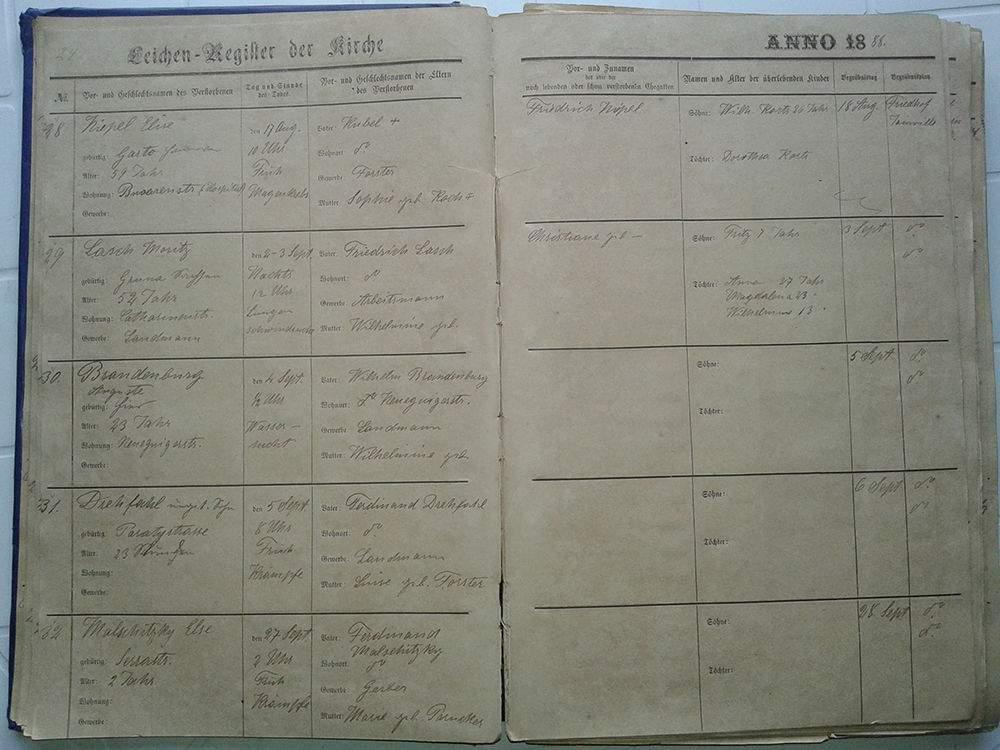 Leichen-Register der Kirche
№.
Vor- und Geschlechtsnamen des Verstorbenen
Tag und Stunde des Todes
Vor- und Geschlechtsnamen der Eltern des Verstorbenen
28
Kiepel Elise
den 17 Aug.
Vater: Kubel +
gebürtig: Garto
10 Uhr
Wohnort: do
Alter: 59 Jahr
Früh
Gewerbe: Forster
Wohnung: (Hospital)
Magenkrebs
Mutter: Sophie geb. Koch +
Gewerbe:
29
Lasch Moritz
den 2-3 Sept
Vater: Friedrich Lasch
gebürtig: Gruna
Nachts
Wohnort: do
Alter: 52 Jahr
12 Uhr
Gewerbe: Arbeitsmann
Wohnung: Catharinenstr.
Lungen
Mutter: Wilhelmine geb.
Gewerbe: Landmann
schwindsucht
30.
Brandenburg
Auguste
den 4 Sept.
Vater: Wilhelm Brandenburg
gebürtig: hier
½ Uhr
Wohnort: do
Alter: 23 Jahr
Wasser-
Gewerbe: Landmann
Wohnung:
sucht
Mutter: Wilhelmine geb.
Gewerbe:
31.
Drehfahl ungt. Sohn
den 5 Sept
Vater: Ferdinand Drehfahl
gebürtig: Paratystrasse
8 Uhr
Wohnort: do.
Alter: 23 Stunden
Früh
Gewerbe: Landmann
Wohnung:
Krämpfe
Mutter: Luise geb. Forster
Gewerbe:
32
Malschitzky Else
den 27 Sept
Vater: Ferdinand Malschitzky
gebürtig: Serrastr.
2 Uhr
Wohnort: do
Alter: 2 Jahr
Früh
Gewerbe: Gerber
Wohnung:
Krämpfe
Mutter: Marie geb.
Gewerbe:
ANNO 1888.
Vor- und Zunamen
des oder der
noch lebenden oder schon verstorbenen Ehegatten
Namen und Alter der überlebenden Kinder
Begräbnistag
Begräbnisplatz
Friedrich Kiepel
Söhne: Wilh. Korts 26 Jahr
18 Aug.
Friedhof
Joinville
Töchter: Dorothea Korts
Christiane geb —
Söhne: Fritz 7 Jahr
3 Sept
do
do
Töchter: Anna 27 Jahr
Magdalena 23
Wilhelmine 13
Söhne:
5 Sept
do
do
Töchter:
Söhne:
6 Sept
do
do
Töchter:
Söhne:
28 Sept
do
do
Töchter: